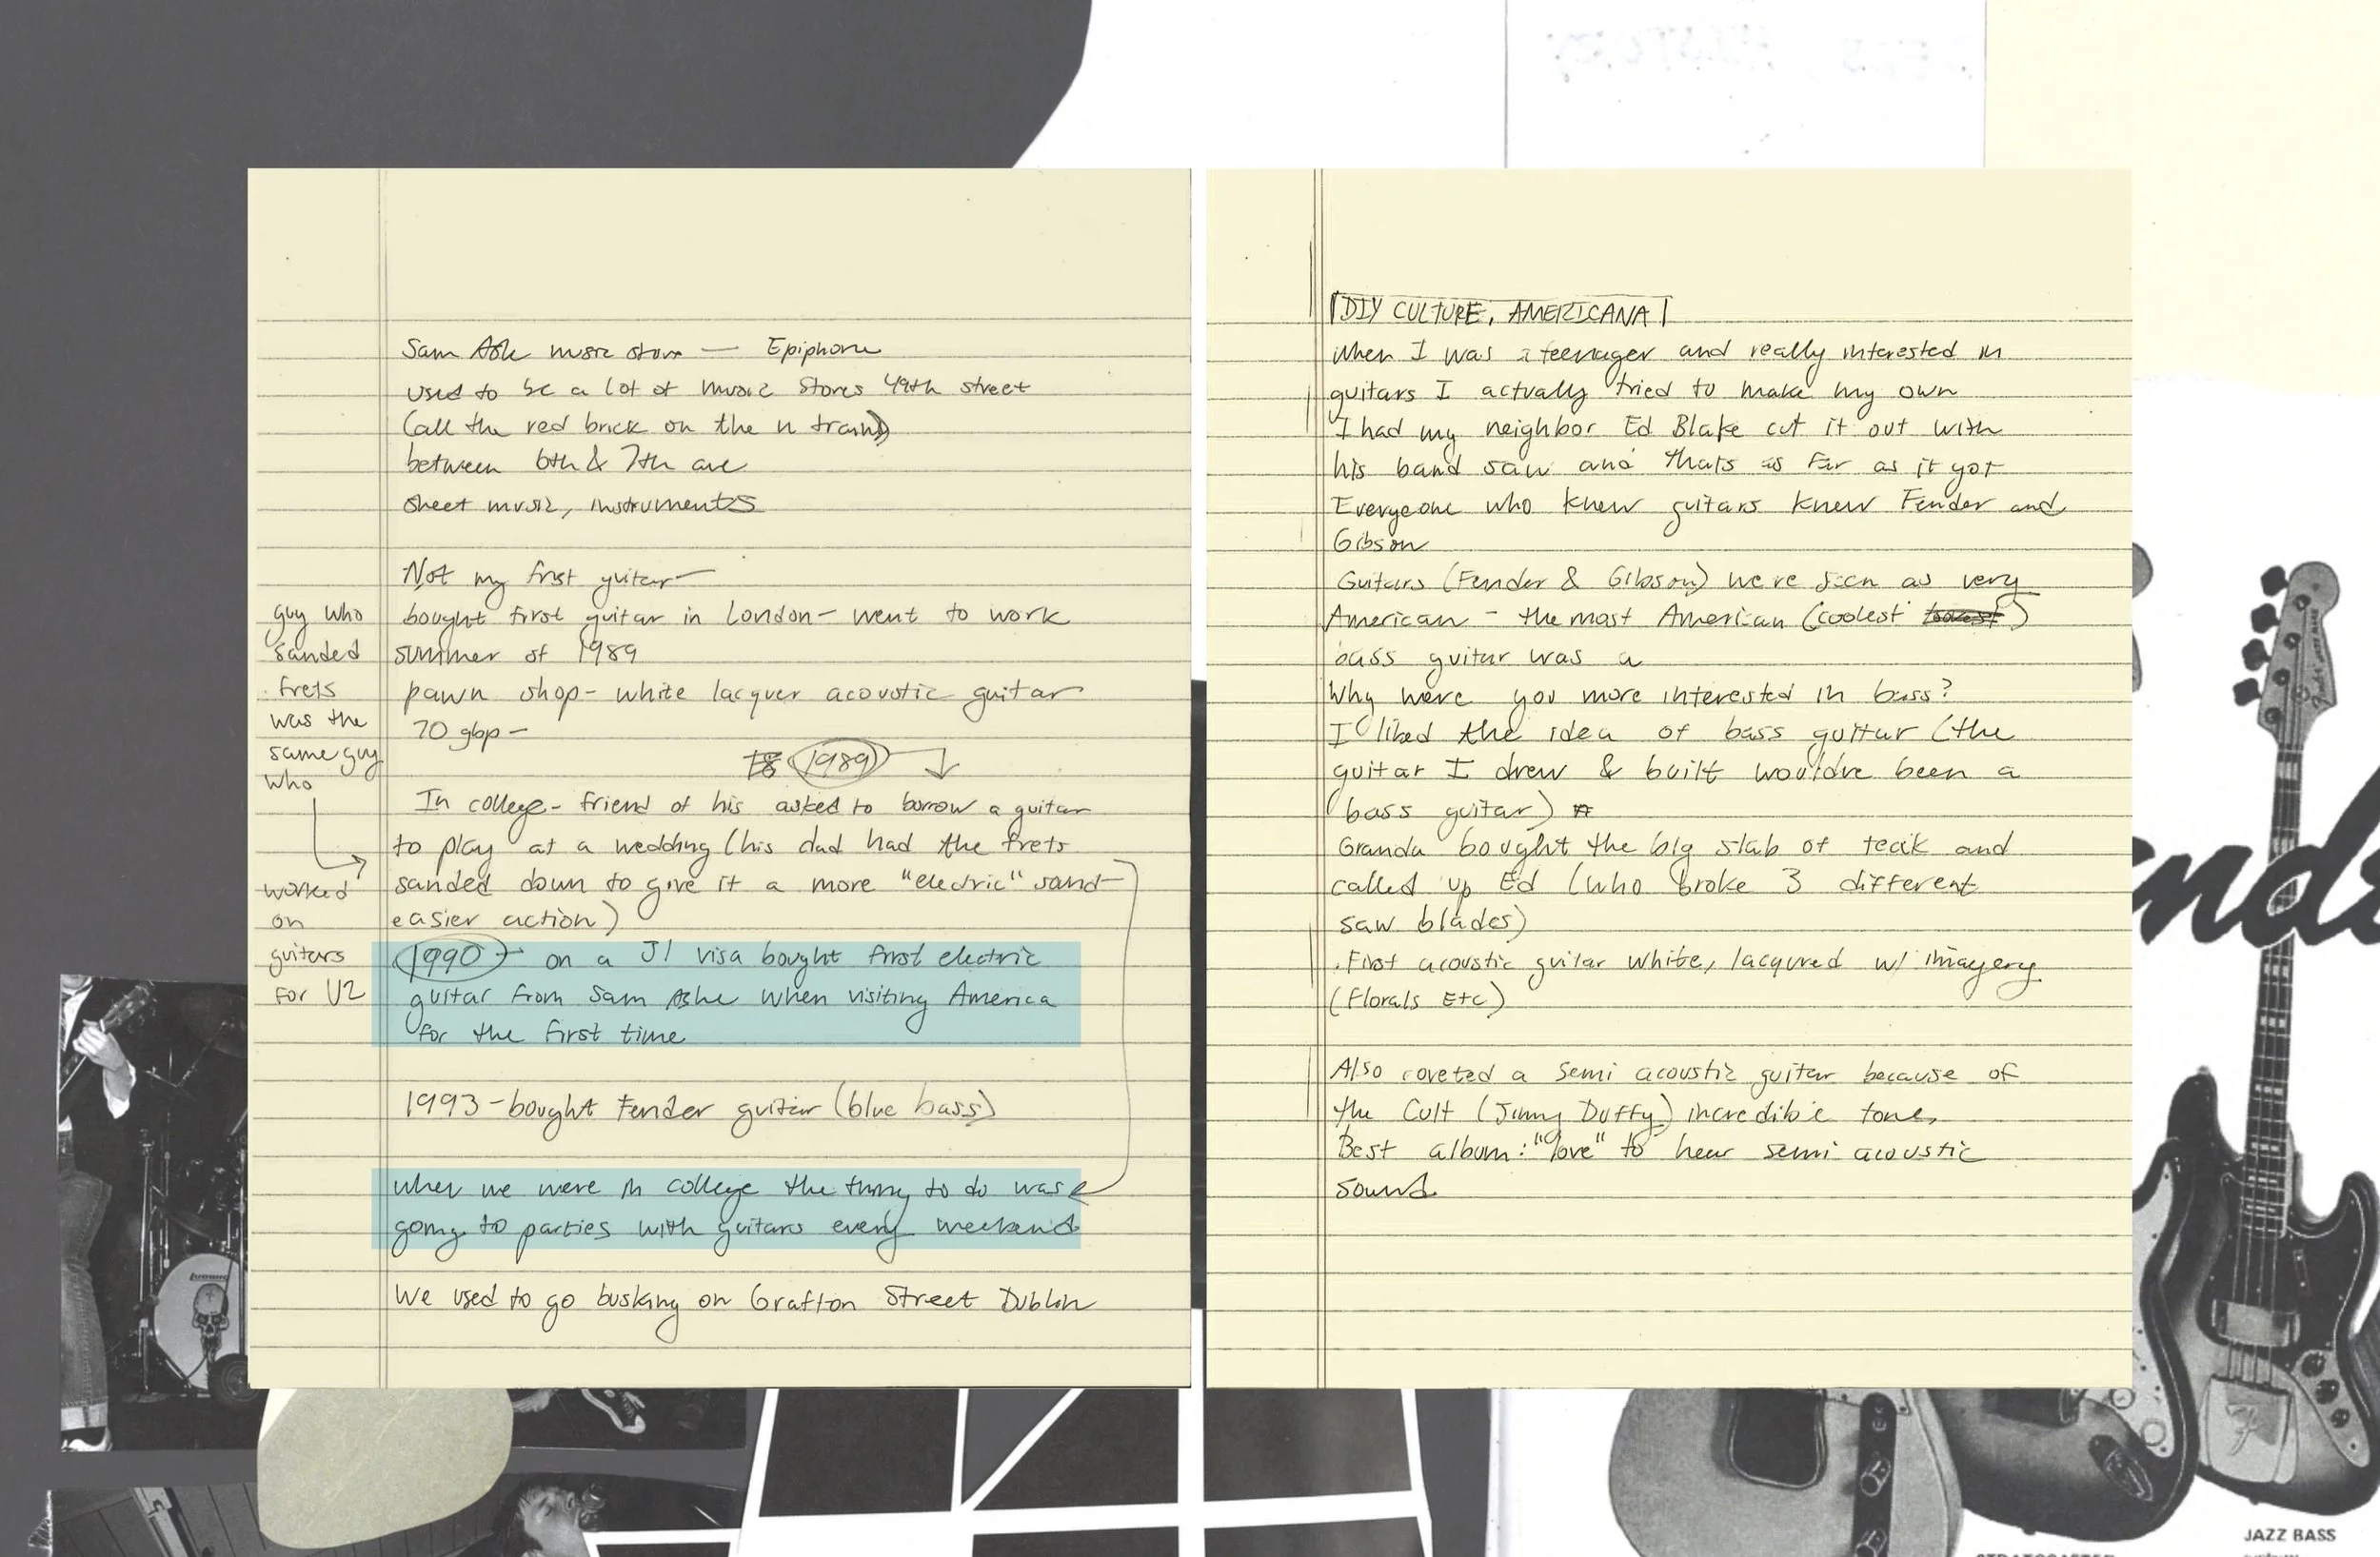 Sam Ashe music store — Epiphone
used to be a lot of music stores 49th street
(all the red brick on the n train)
between 6th & 7th ave
sheet music, instruments
Not my first guitar—
bought first guitar in London— went to work
summer of 1989
pawn shop- white lacquer acoustic guitar
70 gbp —
1989
In college- friend of his asked to borrow a guitar
to play at a wedding (his dad had the frets
sanded down to give it a more "electric" sand—
easier action)
1990 → on a J1 visa bought first electric
guitar from Sam Ashe when visiting America
for the first time
1993-bought Fender guitar (blue bass)
when we were in college the thing to do was
going to parties with guitars every weekend
We used to go busking on Grafton Street Dublin
guy who
sanded
frets
was the
same guy
who
worked
on
guitars
for U2
DIY CULTURE, AMERICANA
When I was a teenager and really interested in
guitars I actually tried to make my own
I had my neighbor Ed Blake cut it out with
his band saw and thats as far as it got
Everyeone who knew guitars knew Fender and
Gibson
Guitars (Fender & Gibson) were seen as very
American - the most American (coolest )
bass guitar was a
Why were you more interested in bass?
I liked the idea of bass guitar (the
guitar I drew & built wouldve been a
bass guitar) *
Granda bought the big slab of teak and
called up Ed (who broke 3 different
saw blades)
.First acoustic guitar white, lacqured w/ imagery
(Florals Etc)
Also coveted a semi acoustic guitar because of
the Cult (Jimmy Duffy) incredible tone,
Best album: "love" to hear semi acoustic
sound
Ludwig
JAZZ BASS
STRATOCASTER